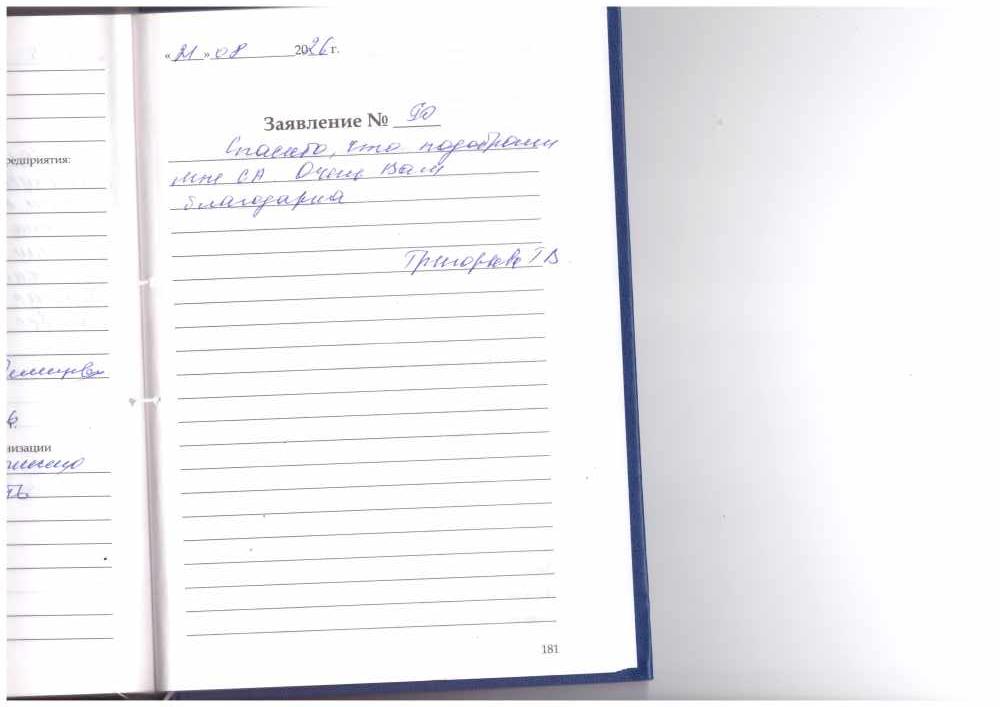 « 21 » 08 2026 г.
Заявление № 90
Спасибо, что подобрали
мне СА Очень Вам
благодарна
Григорьева Т В
редприятия:
низации
181